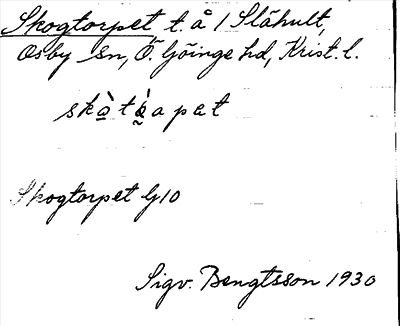 Skogtorpet t. å 1 Slähult,
Osby sn, Ö. Göinge hd, Krist. l.
Skogtorpet G10
Sigv. Bengtsson 1930